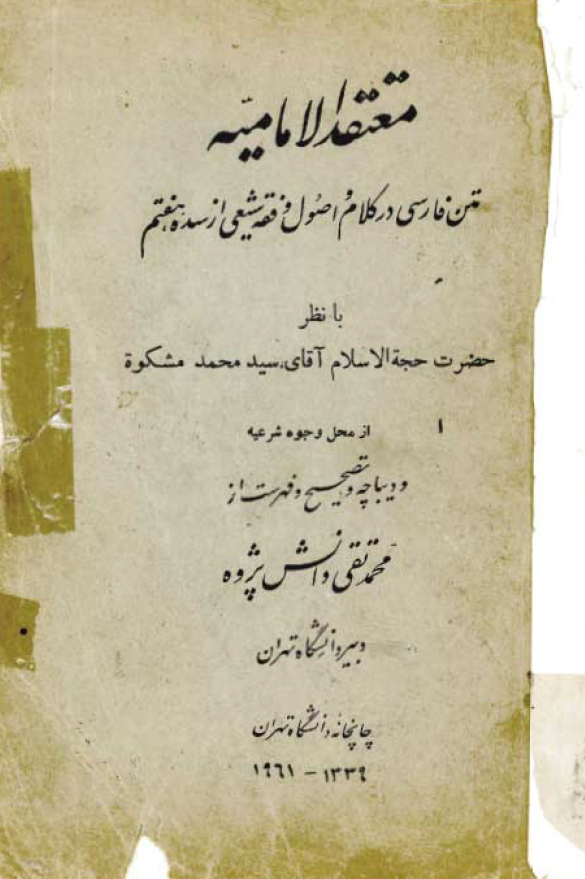 معتقد الامامیّه
متن فارسی در کلام و اصول و فقه شیعی از سده هفتم
با نظر
حضرت حجة الاسلام آقای سید محمد مشکوة
از محل وجوه شرعیه ۱
و دیباچه و تصحیح و فهرست از
محمد تقی دانش پژوه
دبیر دانشگاه تهران
چاپخانه دانشگاه تهران
۱۳۳۹ - ۱۹۶۱